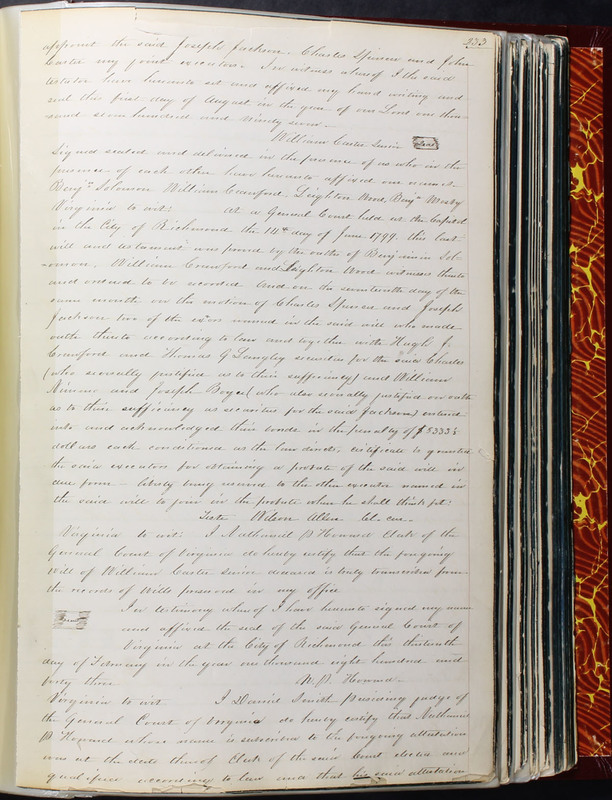 233
appoint the said Joseph Jackson, Charles Spencer and John
Carter my joint executors. In witness whereof I the said
testator have hereunto set and affixed my hand writing and
seal this first day of August in the year of our Lord one thou
sand seven hundred and ninety seven -
William Carter Senior Seal
Signed sealed and delivered in the presence of us who in the
presence of each other have hereunto affixed our names
Benjn Solomon William Crawford, Leighton Wood, Benjn Mosby
Virginia to wit: At a General Court held at the Capitol
in the City of Richmond the 14th day of June 1799. this last
will and testament was proved by the oaths of Benjamin Sol-
omon, William Crawford and Leighton Wood witnesses thereto
and ordered to be recorded And on the seventeenth day of the
same month on the motion of Charles Spencer and Joseph
Jackson two of the exors named in the said will who made
oath thereto according to law and together with Hugh
Crawford and Thomas G Langley securities for the said Charles
(who severally justified as to their sufficiency) and William
Nimmo and Joseph Boyce (who also severally justified on oath
as to their sufficiency as securities for the said Jackson) entered
into and acknowledged their bonds in the penalty of $3333⅓
dollars each conditioned as the law directs, certificate is granted
the said executors for obtaining a probate of the said will in
due form - liberty being reserved to the other executor named in
the said will to join in the probate when he shall think fit:
Teste Wilson Allen Cl. cur.
Virginia to wit: I Nathaniel P Howard Clerk of the
General Court of Virginia do hereby certify that the foregoing
will of William Carter Senior deceased is truly transcribed from
the records of Wills preserved in my office
In testimony whereof I have hereunto signed my name
Seal and affixed the seal of the said General Court of
Virginia at the City of Richmond this thirteenth
day of February in the year one thousand eight hundred and
forty three N. P. Howard -
Virginia to wit I Daniel Smith presiding judge of
the General Court of Virginia do hereby certify that Nathaniel
P Howard whose name is subscribed to the foregoing attestation
was at the date thereof Clerk of the said Court elected and
qualified according to law and that his said attestation